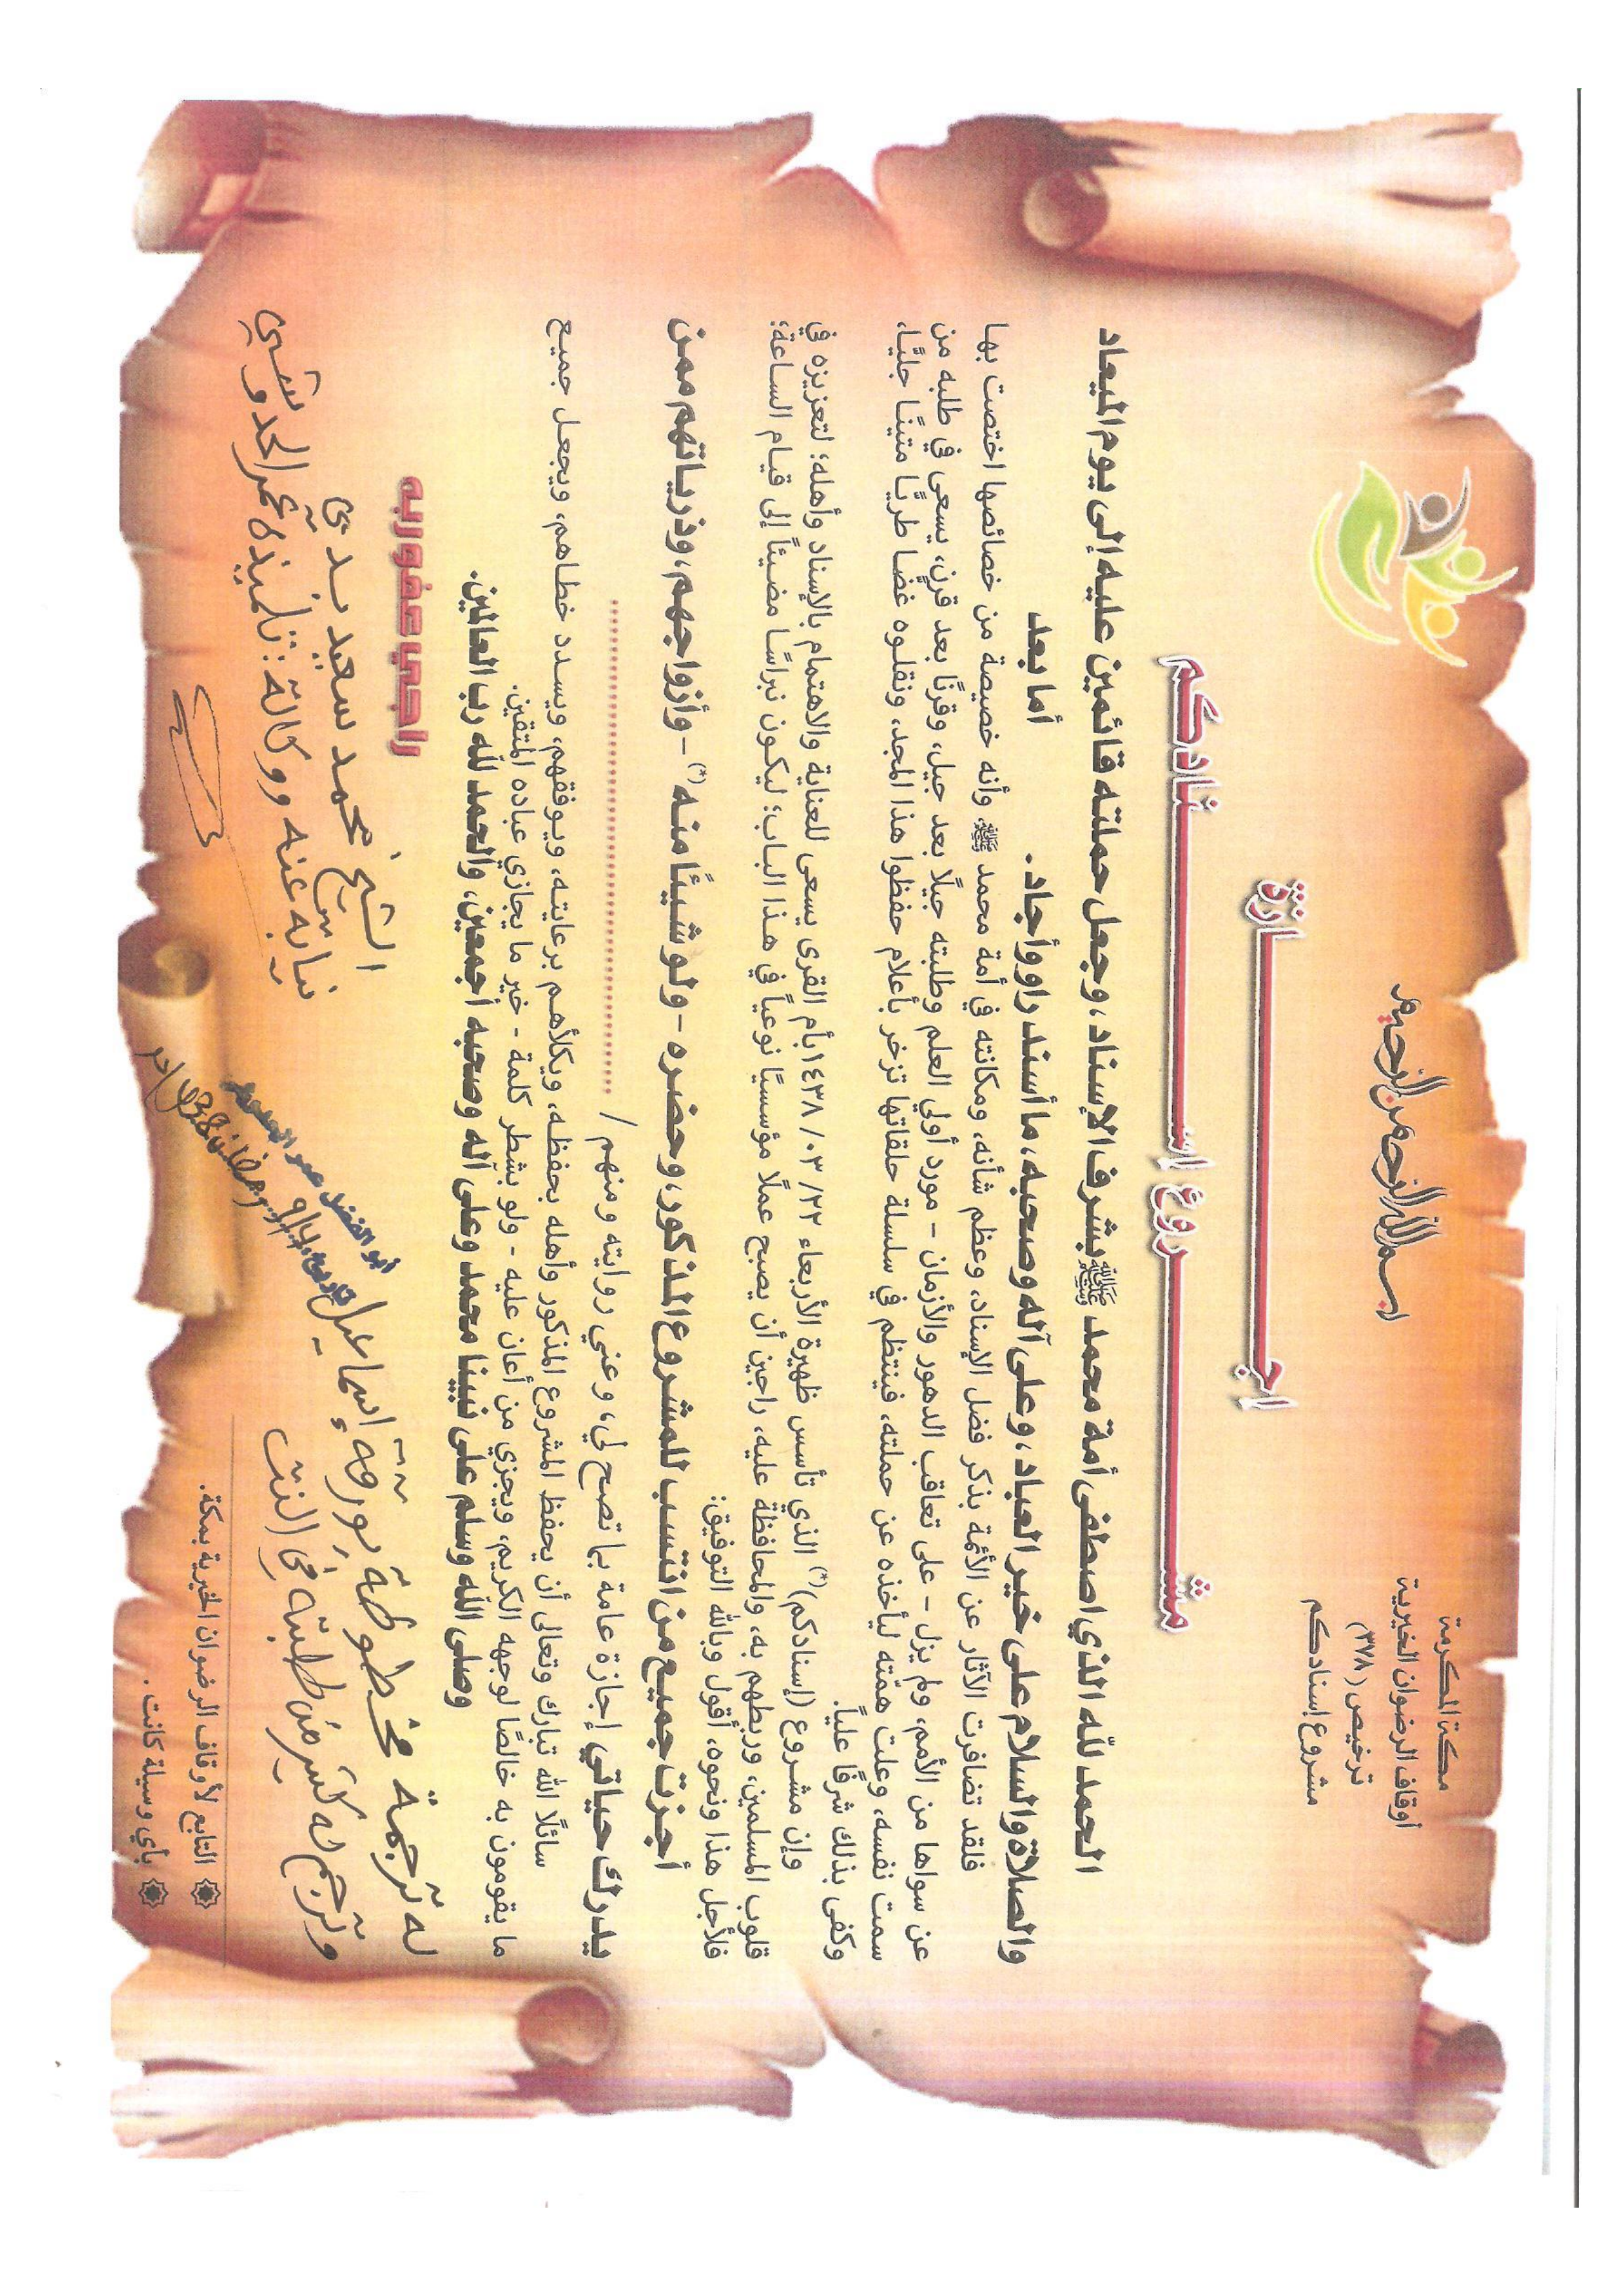 بسم الله الرحمن الرحيم
مكة المكرمة
أوقاف الرضوان الخيرية
ترخيص (٣٧٨)
مشروع إسنادكم
إجـــــــازة
مشـــــــروع إســـــــنادكم
الحمد لله الذي اصطفى أمة محمد ﷺ بشرف الإسناد، وجعل حملته قائمين عليه إلى يوم الميعاد
والصلاة والسلام على خير العباد، وعلى آله وصحبه، ما أسند راو وأجاد.
أما بعد
فلقد تضافرت الآثار عن الأئمة بذكر فضل الإسناد، وعظم شأنه، ومكانته في أمة محمد ﷺ، وأنه خصيصة من خصائصها اختصت بها
عن سواها من الأمم، ولم يزل - على تعاقب الدهور والأزمان - مورد أولي العلم وطلبته جيلًا بعد جيل، وقرنًا بعد قرن، يسعى في طلبه من
سمت نفسه، وعلت همّته ليأخذه عن حملته، فينتظم في سلسلة حلقاتها تزخر بأعلام حفظوا هذا المجد، ونقلوه غضا طريًا متينًا جليًا،
وكفى بذلك شرفًا عليًا.
وإن مشروع (إسنادكم)(*) الذي تأسس ظهيرة الأربعاء ٢٢/ ٠٣/ ١٤٣٨ بأم القرى يسعى للعناية والاهتمام بالإسناد وأهله؛ لتعزيزه في
قلوب المسلمين، وربطهم به، والمحافظة عليه، راجين أن يصبح عملًا مؤسسيًا نوعياً في هذا الباب؛ ليكون نبراسًا مضيئاً إلى قيام الساعة؛
فلأجل هذا ونحوه، أقول وبالله التوفيق:
أجزت جميع من انتسب للمشروع المذكور، وحضره - ولو شيئًا منه(*) - وأزواجهم، وذرياتهم ممن
يدرك حياتي إجازة عامة بما تصح لي، وعني روايته ومنهم / ..............................
سائلًا الله تبارك وتعالى أن يحفظ المشروع المذكور وأهله بحفظه، ويكلأهم برعايته، ويوفقهم، ويسدد خطاهم، ويجعل جميع
ما يقومون به خالصًا لوجهه الكريم، ويجزي من أعان عليه - ولو بشطر كلمة - خير ما يجازي عباده المتقين.
وصلى الله وسلم على نبينا محمد وعلى آله وصحبه أجمعين، والحمد لله رب العالمين.
راجي عفو ربه
الشيخ محمد سعيد
نيابة عنه ووكالة: تلميذه عمر الحدوشي
له ترجمة مخطوطة بورقة إسماعيل
وترجم له كثير من طلبته في النت
أبو الفضل عمر الحدوشي
التابع لأوقاف الرضوان الخيرية بمكة.
بأي وسيلة كانت.